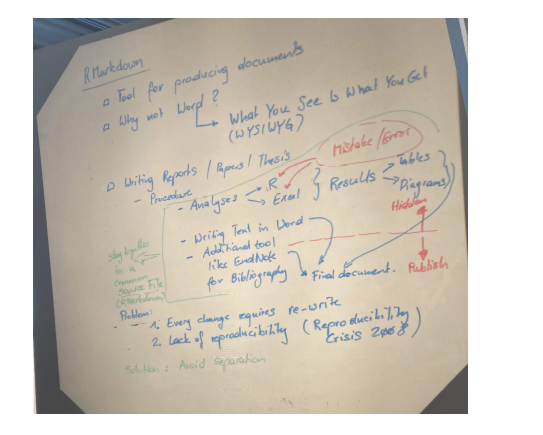 RMarkdown
Tool for producing documents
Why not Word?
What You See Is What You Get
(WYSIWYG)
Writing Reports / Papers / Thesis
- Procedure
- Analyses
R
Excel
Mistake/Error
Results
Tables
Diagrams
Hidden
Publish
- Writing Text in Word
- Additional tool
like EndNote
for Bibliography
Final document.
in a
common
source File
(RMarkdown)
Problem:
1. Every change requires re-write
2. Lack of reproducibility (Reproducibility
Crisis
Solution: Avoid separation